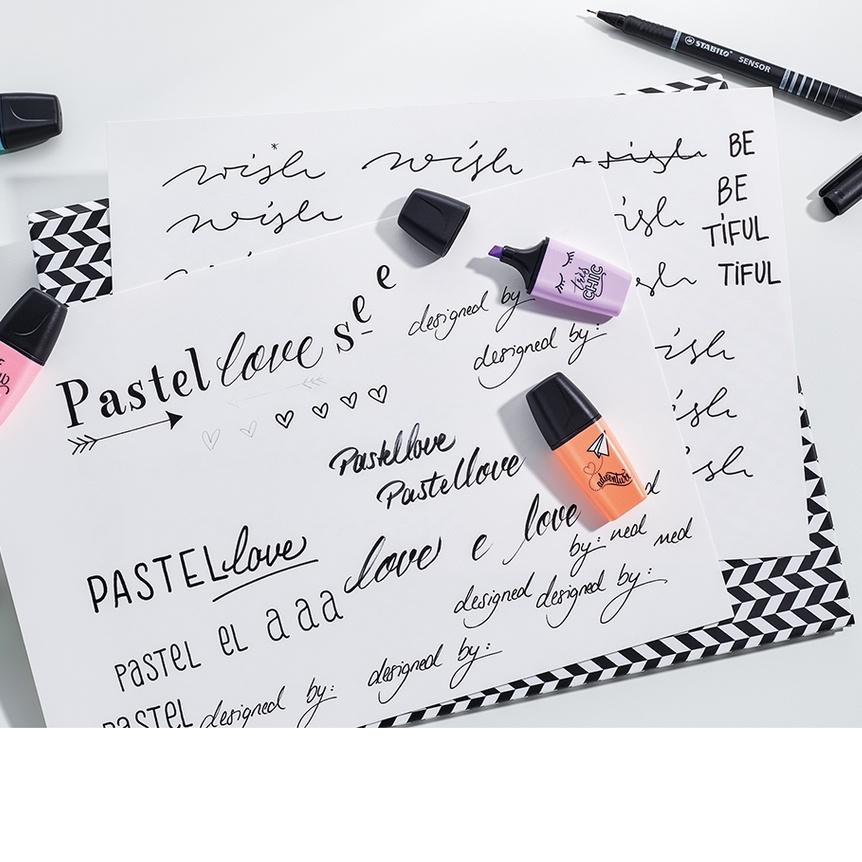 STABILO SENSOR
wish* wish wish BE
wish wish BE
TIFUL
wish TIFUL
wish
wish
wish
très
CHIC
Pastel love see e
designed by
designed by:
Pastellove
Pastellove
adventure
PASTELlove love e love
by: ned ned
PASTEL EL a a a
designed designed by:
designed by:
PASTEL designed by: